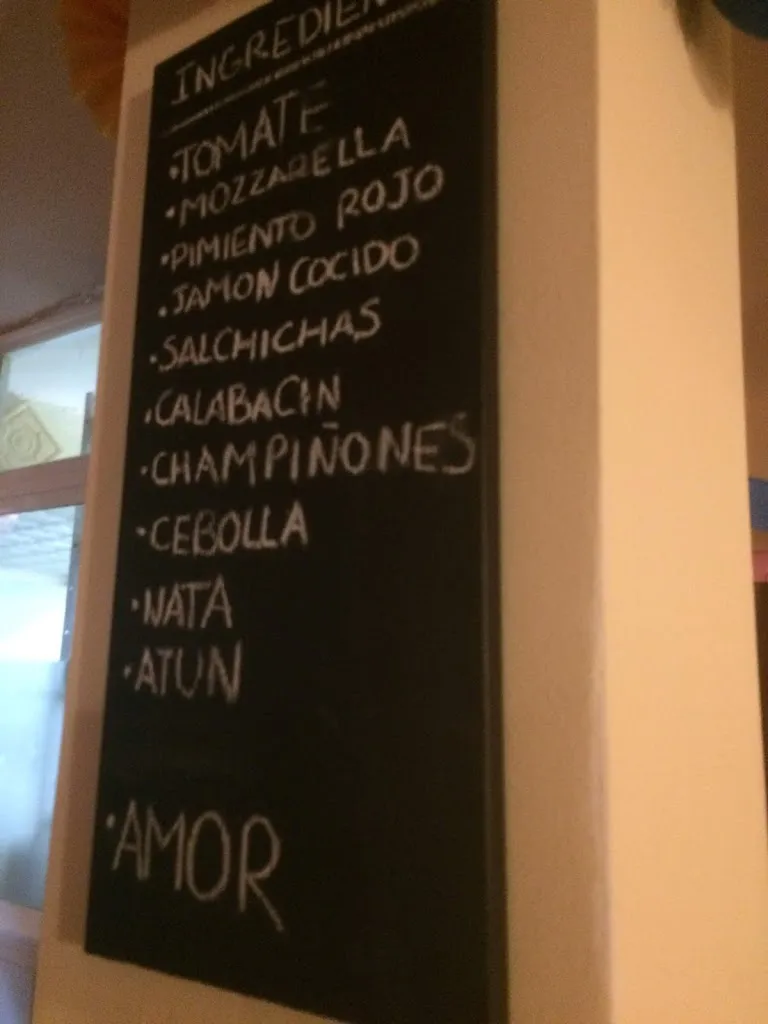 INGREDIEN
·TOMATE
·MOZZARELLA
·PIMIENTO ROJO
·JAMON COCIDO
·SALCHICHAS
·CALABACIN
·CHAMPIÑONES
·CEBOLLA
·NATA
·ATUN
·AMOR